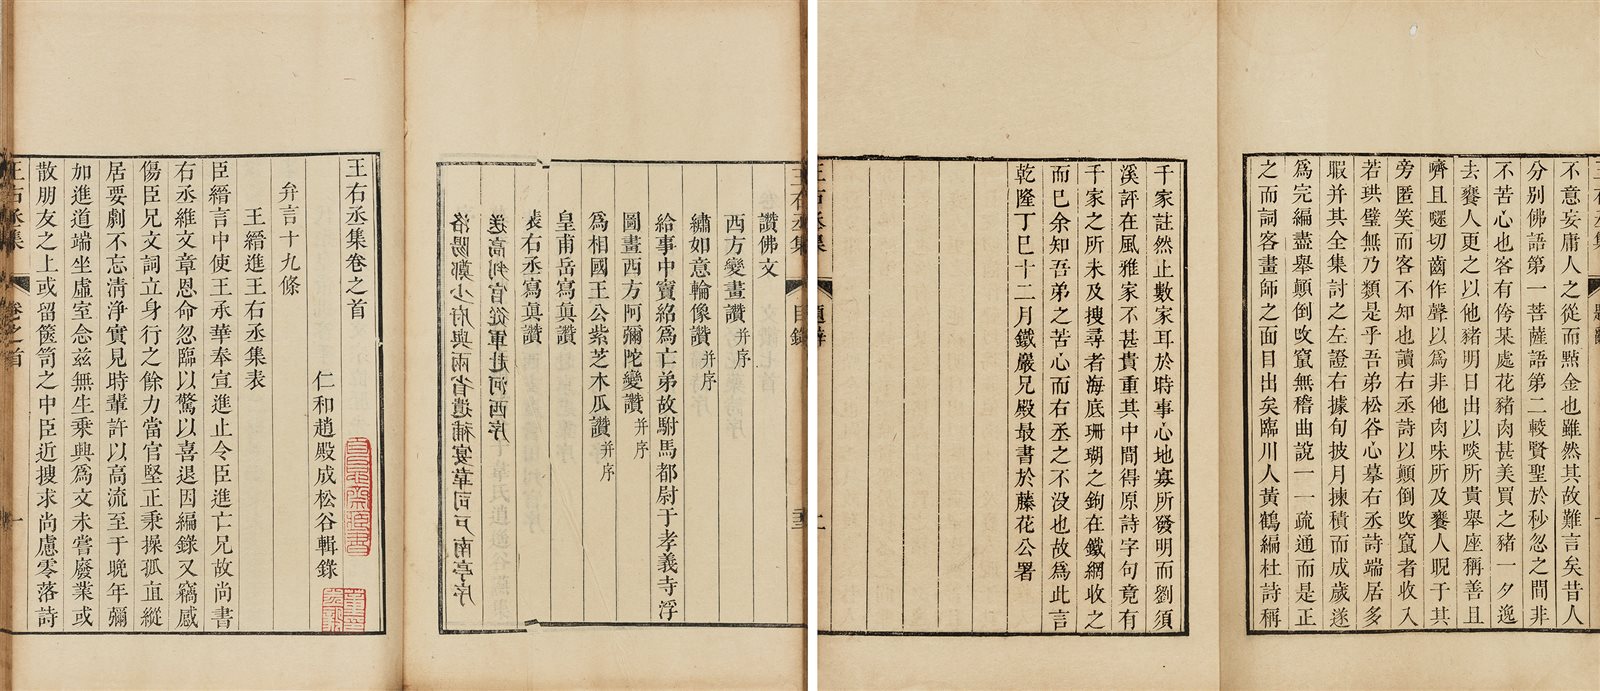 不意妄庸人之從而㸃金也雖然其故難言矣昔人
分別佛語第一菩薩語第二較賢聖於秒忽之間非
不苦心也客有侉某處花豬肉甚美買之豬一夕逸
去饔人更之以他豬明日出以啖所貴舉座稱善且
嚌且嘬切齒作聲以爲非他肉味所及饔人睨于其
旁匿笑而客不知也讀右丞詩以顛倒攺竄者收入
若珙璧無乃類是乎吾弟松谷心摹右丞詩端居多
暇并其全集討之左證右據句披月揀積而成歲遂
爲完編盡舉顛倒攺竄無稽曲說一一疏通而是正
之而詞客畫師之面目出矣臨川人黃鶴編杜詩稱
千家註然止數家耳於時事心地寡所發明而劉須
溪評在風雅家不甚貴重其中間得原詩字句竟有
千家之所未及搜尋者海底珊瑚之鉤在鐵網收之
而已余知吾弟之苦心而右丞之不没也故爲此言
乾隆丁巳十二月鐵嚴兄殿最書於藤花公署
王右丞集 題辭 二
王右丞集 目錄
讚佛文
西方變畫讚并序
繡如意輪像讚并序
給事中竇紹爲亡弟故駙馬都尉于孝義寺浮
圖畫西方阿彌陀變讚并序
爲相國王公紫芝木瓜讚并序
皇甫岳寫眞讚
裴右丞寫眞讚
送高判官從軍赴河西序
洛陽鄭少府與兩省遺補宴韋司戸南亭序
王右丞集卷之首
仁和趙殿成松谷輯錄
弁言十九條
王縉進王右丞集表
臣縉言中使王承華奉宣進止令臣進亡兄故尚書
右丞維文章恩命忽臨以驚以喜退因編錄又竊感
傷臣兄文詞立身行之餘力當官堅正秉操孤直縱
居要劇不忘清淨實見時輩許以高流至于晩年彌
加進道端坐虛室念兹無生乗興爲文未嘗廢業或
散朋友之上或留篋笥之中臣近搜求尚慮零落詩
王右丞集 卷之首 一